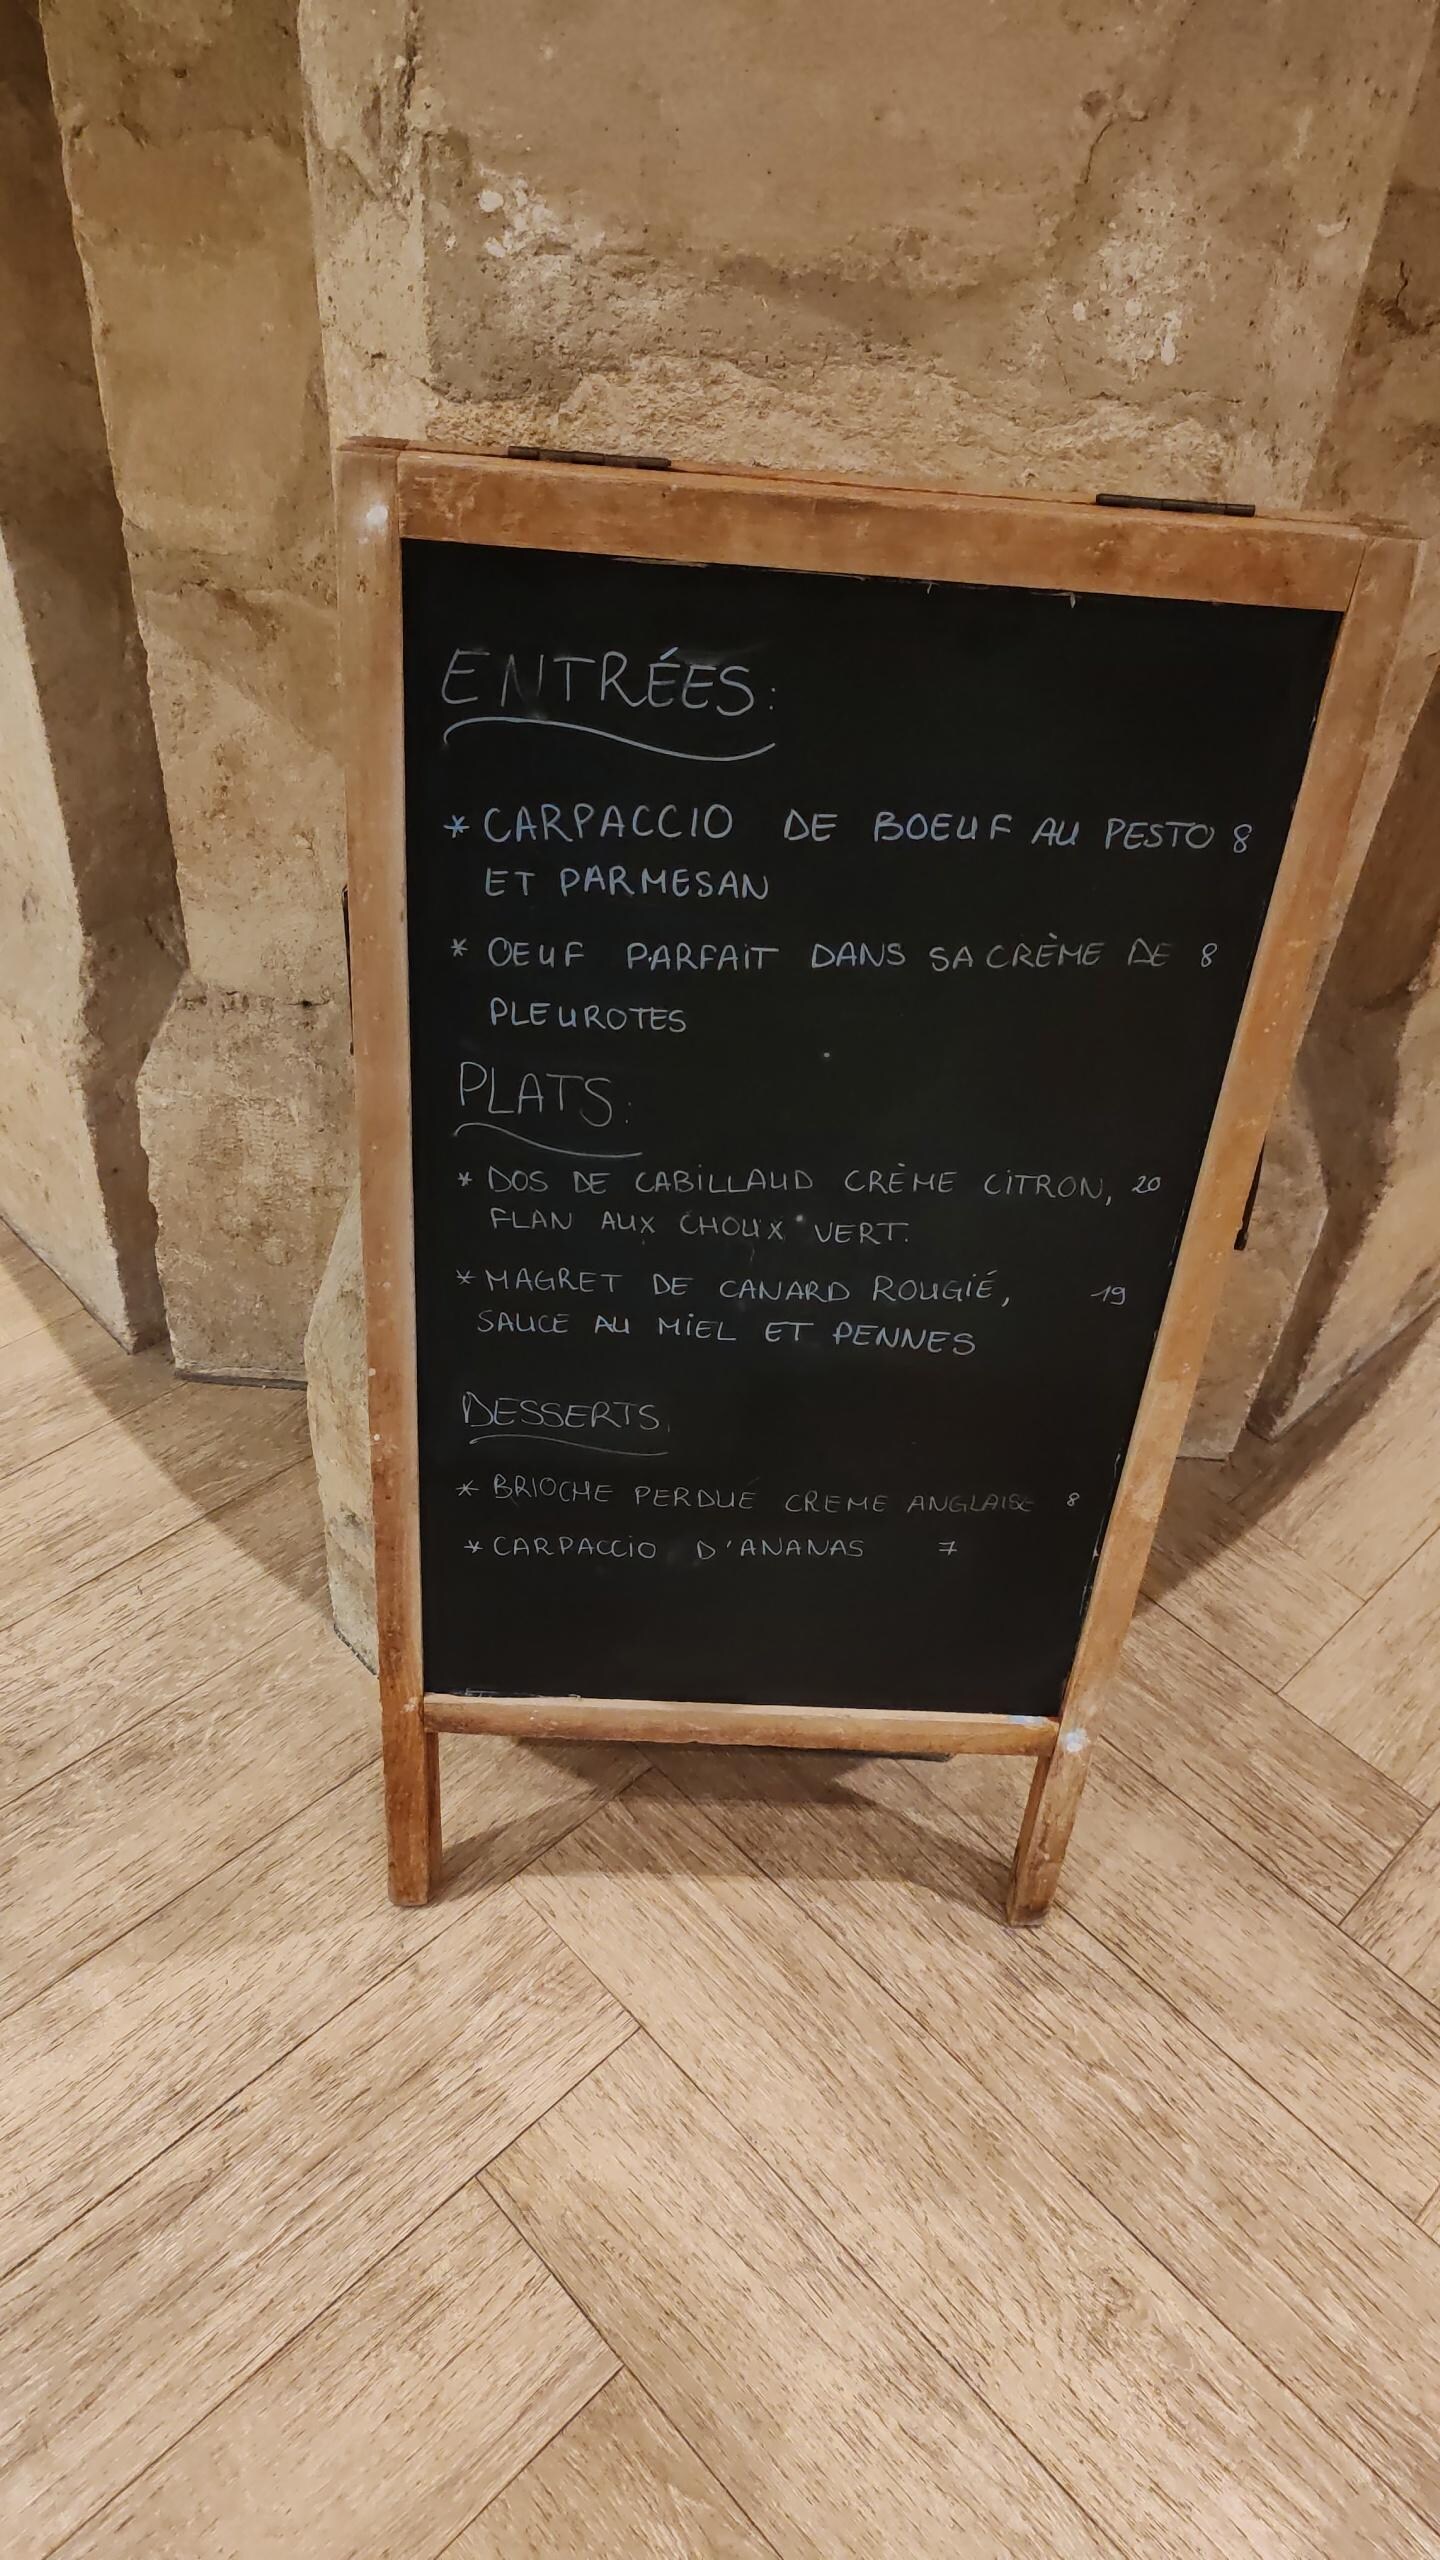 ENTRÉES:
* CARPACCIO DE BOEUF AU PESTO 8
ET PARMESAN
* OEUF PARFAIT DANS SA CRÈME DE 8
PLEUROTES
PLATS:
* DOS DE CABILLAUD CRÈME CITRON, 20
FLAN AUX CHOUX VERT.
* MAGRET DE CANARD ROUGIÉ, 19
SAUCE AU MIEL ET PENNES
DESSERTS:
* BRIOCHE PERDUE CREME ANGLAISE 8
* CARPACCIO D'ANANAS 7